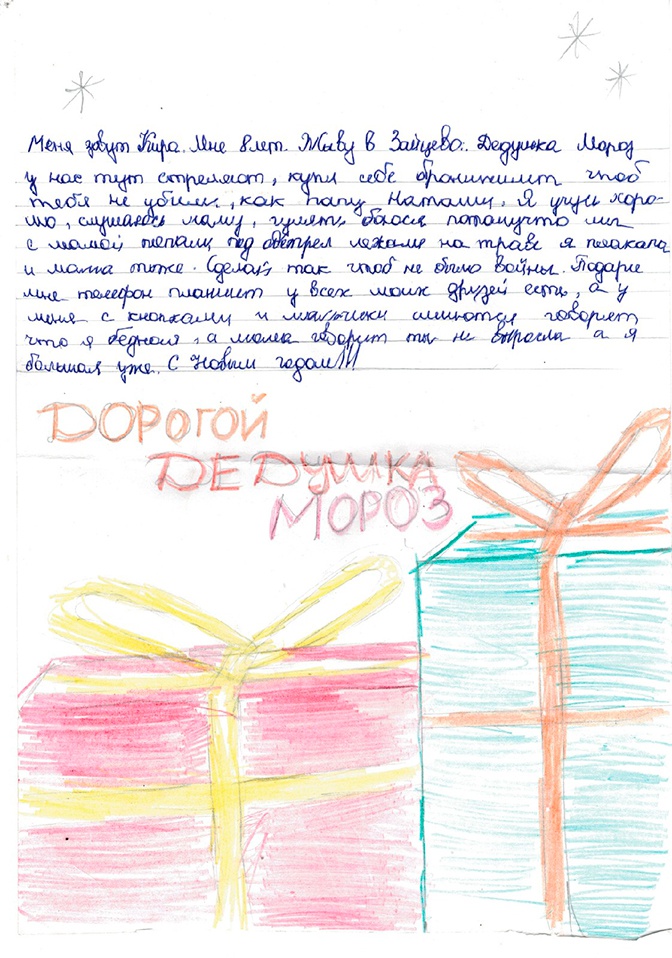 Меня зовут Кира. Мне 8 лет. Живу в Зайцево. Дедушка Мороз
у нас тут стреляют, купи себе бронижилт чтоб
тебя не убили, как папу Наташи. Я учусь хоро-
шо, слушаюсь маму, гулять боюся потомучто мы
с мамой попали под обстрел лежали на траве я плакала
и мама тоже. Сделай так чтоб не было войны. Подари
мне телефон планшет у всех моих друзей есть, а у
меня с кнопками и мальчики смиются говорят
что я бедная, а мама говорит ты не взросла а я
большая уже. С Новым годом!!!
ДОРОГОЙ
ДЕДУШКА
МОРОЗ